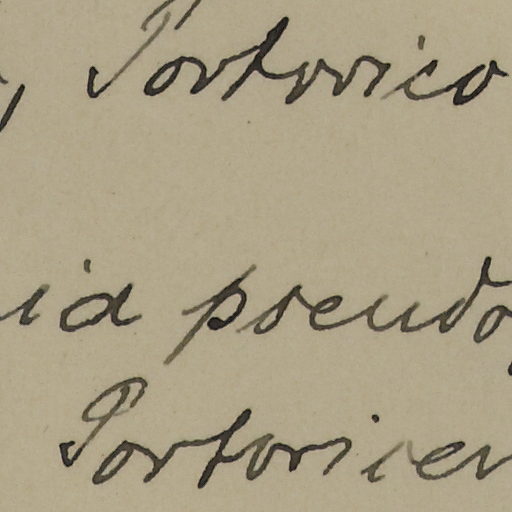 , Portorico
ia pseudo
Portoricen